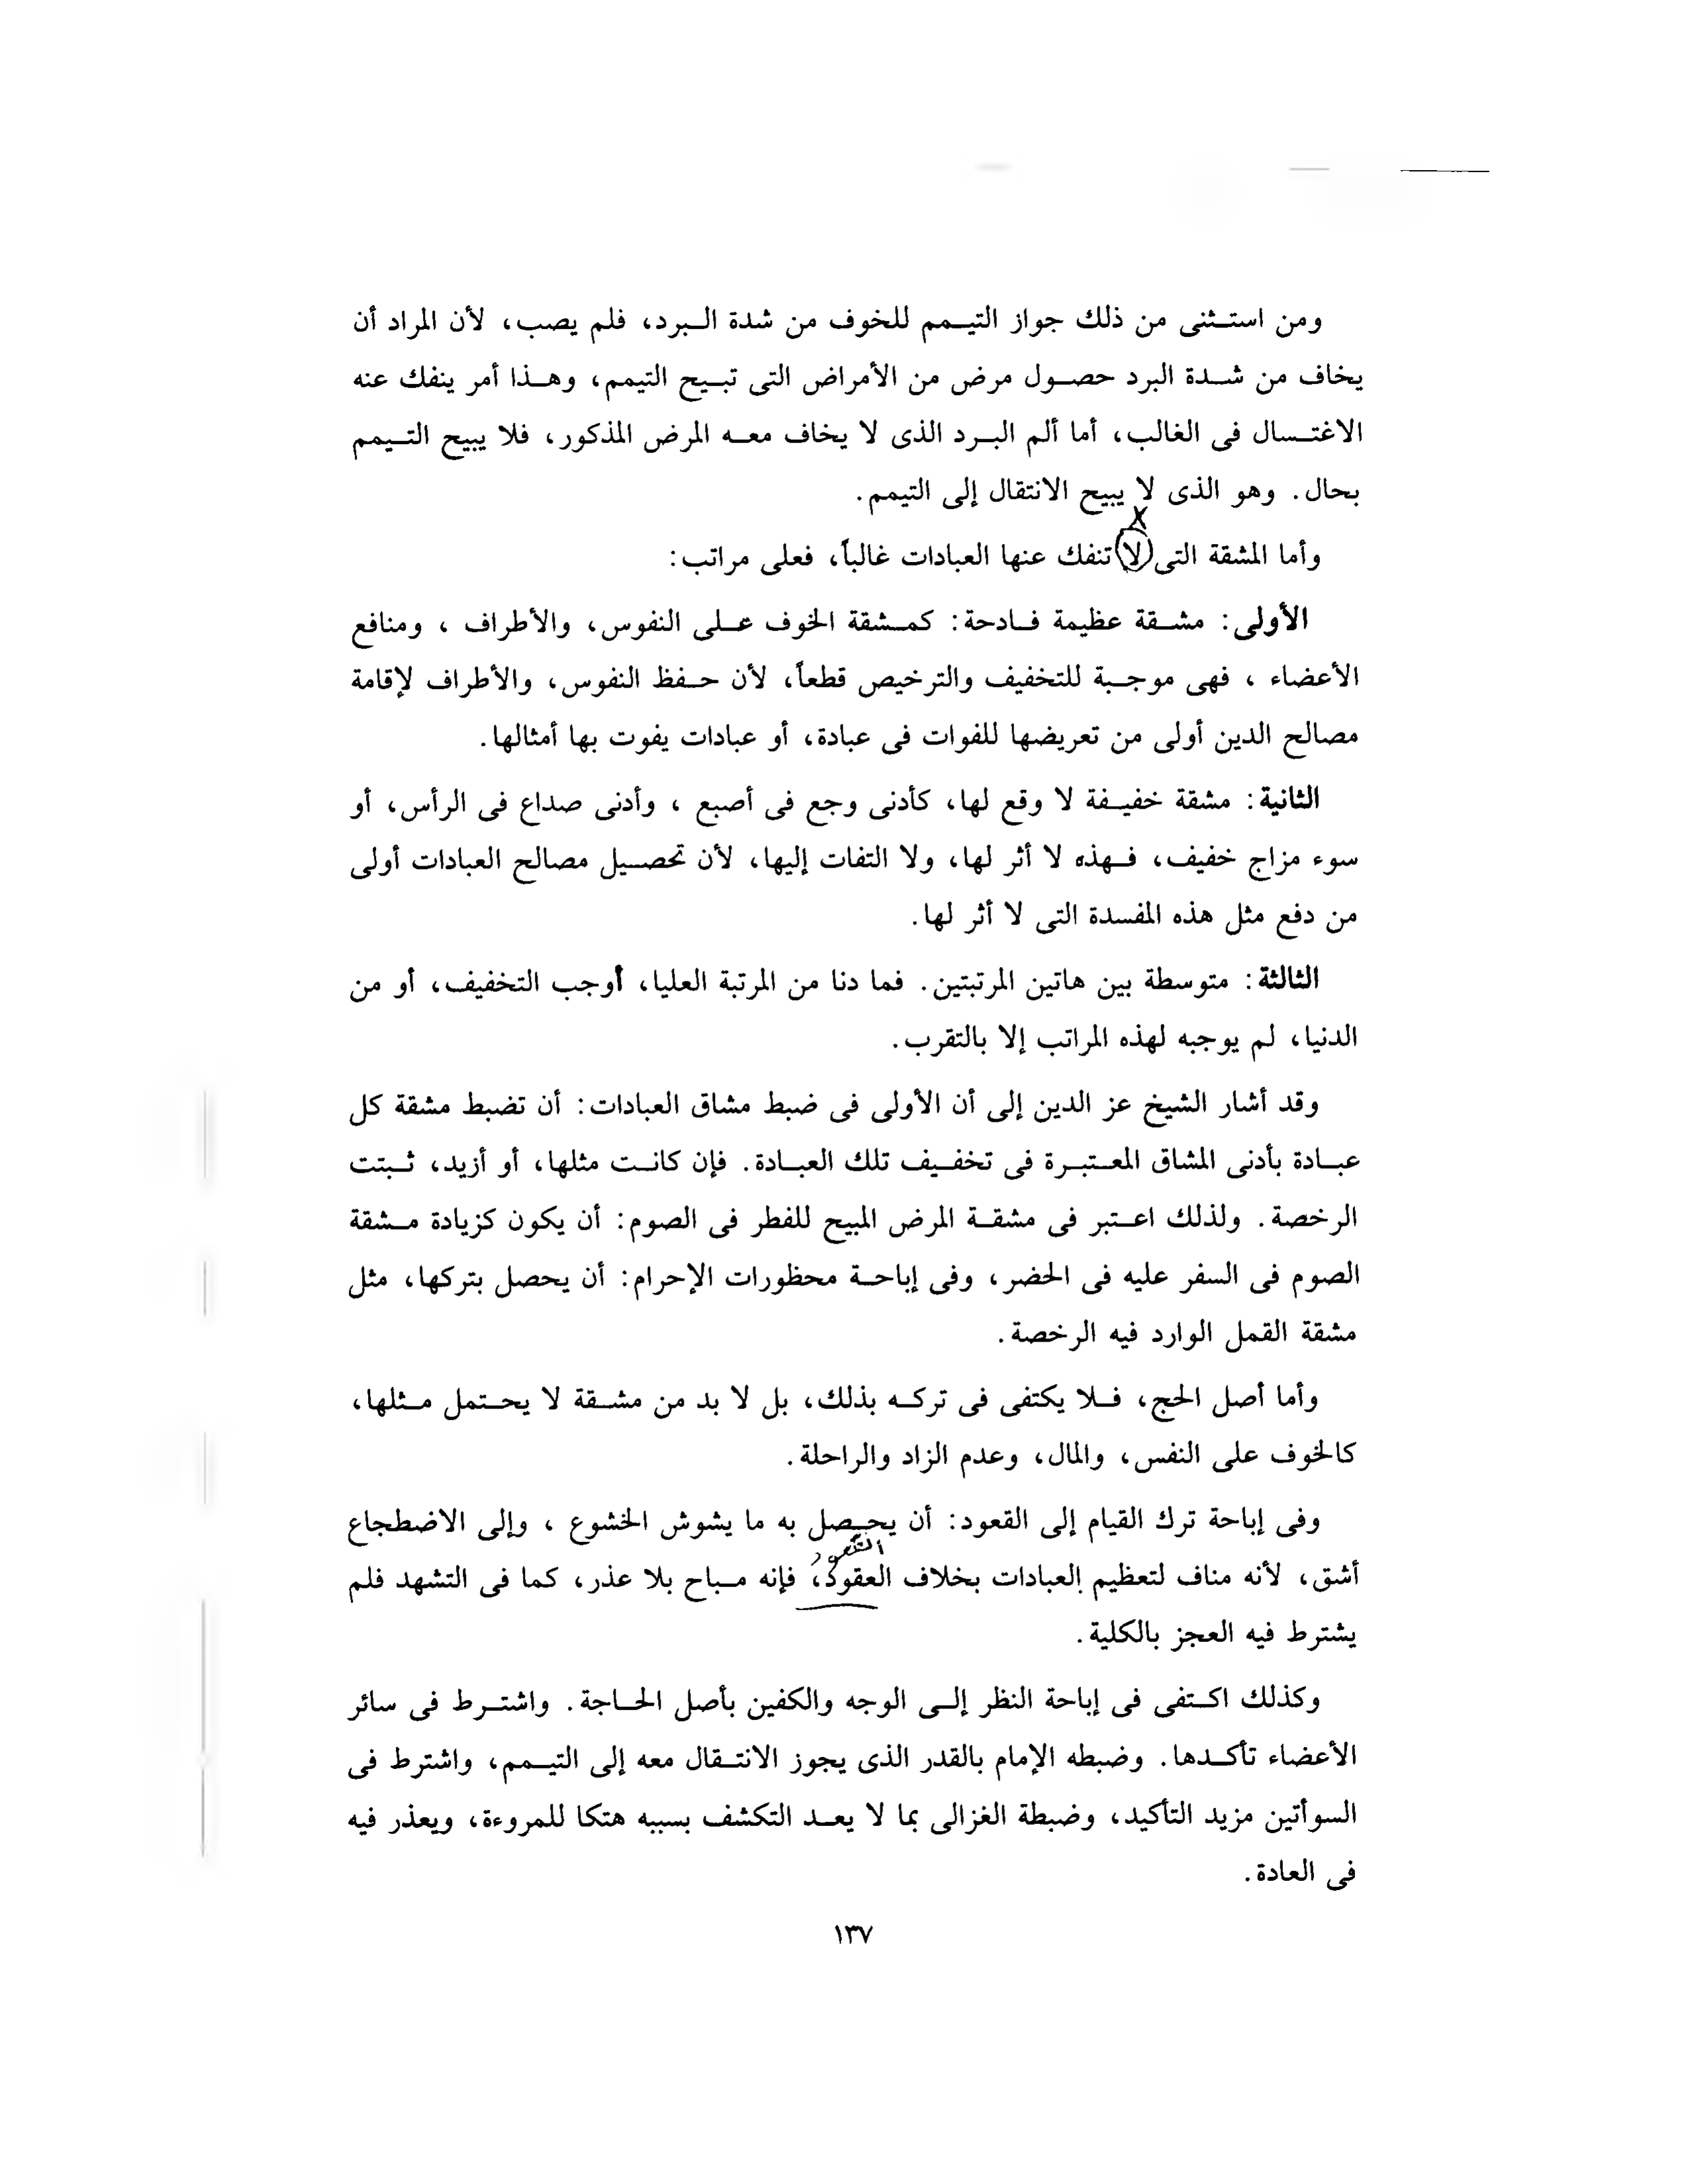 ومن استثنى من ذلك جواز التيمم للخوف من شدة البرد، فلم يصب، لأن المراد أن
يخاف من شدة البرد حصول مرض من الأمراض التى تبيح التيمم، وهذا أمر ينفك عنه
الاغتسال فى الغالب، أما ألم البرد الذى لا يخاف معه المرض المذكور، فلا يبيح التيمم
بحال. وهو الذى لا يبيح الانتقال إلى التيمم.
وأما المشقة التى لا تنفك عنها العبادات غالباً، فعلى مراتب:
الأولى: مشقة عظيمة فادحة: كمشقة الخوف على النفوس، والأطراف ، ومنافع
الأعضاء ، فهى موجبة للتخفيف والترخيص قطعاً، لأن حفظ النفوس، والأطراف لإقامة
مصالح الدين أولى من تعريضها للفوات فى عبادة، أو عبادات يفوت بها أمثالها.
الثانية: مشقة خفيفة لا وقع لها، كأدنى وجع فى أصبع ، وأدنى صداع فى الرأس، أو
سوء مزاج خفيف، فهذه لا أثر لها، ولا التفات إليها، لأن تحصيل مصالح العبادات أولى
من دفع مثل هذه المفسدة التى لا أثر لها.
الثالثة: متوسطة بين هاتين المرتبتين. فما دنا من المرتبة العليا، أوجب التخفيف، أو من
الدنيا، لم يوجبه لهذه المراتب إلا بالتقرب.
وقد أشار الشيخ عز الدين إلى أن الأولى فى ضبط مشاق العبادات: أن تضبط مشقة كل
عبادة بأدنى المشاق المعتبرة فى تخفيف تلك العبادة. فإن كانت مثلها، أو أزيد، ثبتت
الرخصة. ولذلك اعتبر فى مشقة المرض المبيح للفطر فى الصوم: أن يكون كزيادة مشقة
الصوم فى السفر عليه فى الحضر، وفى إباحة محظورات الإحرام: أن يحصل بتركها، مثل
مشقة القمل الوارد فيه الرخصة.
وأما أصل الحج، فلا يكتفى فى تركه بذلك، بل لا بد من مشقة لا يحتمل مثلها،
كالخوف على النفس، والمال، وعدم الزاد والراحلة.
وفى إباحة ترك القيام إلى القعود: أن يحصل به ما يشوش الخشوع ، وإلى الاضطجاع
القعود
أشق، لأنه مناف لتعظيم العبادات بخلاف العقود، فإنه مباح بلا عذر، كما فى التشهد فلم
يشترط فيه العجز بالكلية.
وكذلك اكتفى فى إباحة النظر إلى الوجه والكفين بأصل الحاجة. واشترط فى سائر
الأعضاء تأكدها. وضبطه الإمام بالقدر الذى يجوز الانتقال معه إلى التيمم، واشترط فى
السوأتين مزيد التأكيد، وضبطة الغزالى بما لا يعد التكشف بسببه هتكا للمروءة، ويعذر فيه
فى العادة.
١٣٧